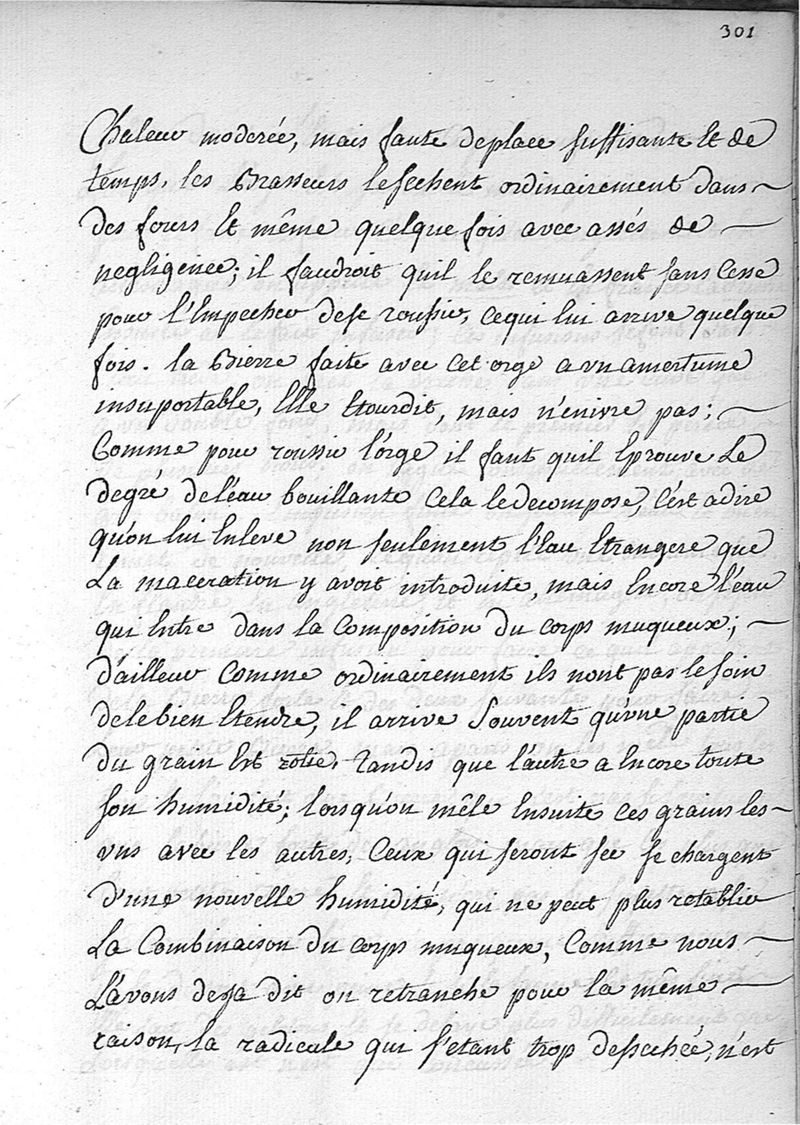 301
Chaleur moderée, mais faute deplace suffisante et de
temps, les Brasseurs lesechent ordinairement dans
des fours et même quelque fois avec assés de
negligence; il faudroit quil le remuassent sans cesse
pour l'Empecher dese roussir, cequi lui arrive quelque
fois. la Bierre faite avec cet orge a un amertume
insuportable, Elle Etourdit, mais n'enivre pas;
Comme pour roussir l'orge il faut quil Eprouve Le
degré deléau bouillante cela ledecompose, c'est adire
qu'on lui Enleve non seulement l'Eau Etrangere que
La maceration y avoit introduite, mais Encore l'eau
qui Entre dans la Composition du corps muqueux;
d'ailleur Comme ordinairement ils nont pas le soin
delebien Etendre, il arrive souvent qu'une partie
du grain Est rotie, Tandis que l'autre a Encore toute
son humidité; lorsqu'on mêle Ensuite ces grains les
uns avec les autres, Ceux qui seront sec se chargent
d'une nouvelle humidité, qui ne peut plus retablir
La Combinaison du corps muqueux, Comme nous
L'avons deja dit on retranche pour la même
raison, la radicule qui s'etant trop dessechée, n'est